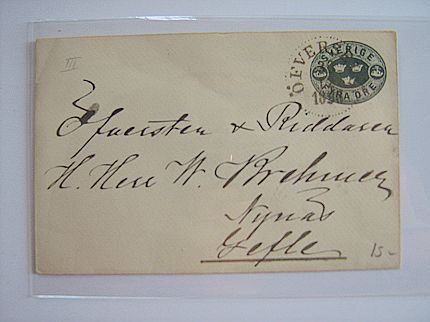 III
SVERIGE
FYRA ÖRE
ÖFVER
Öfversten & Riddaren
H. Herr W. Brehmer
Nynäs
Gefle
15-